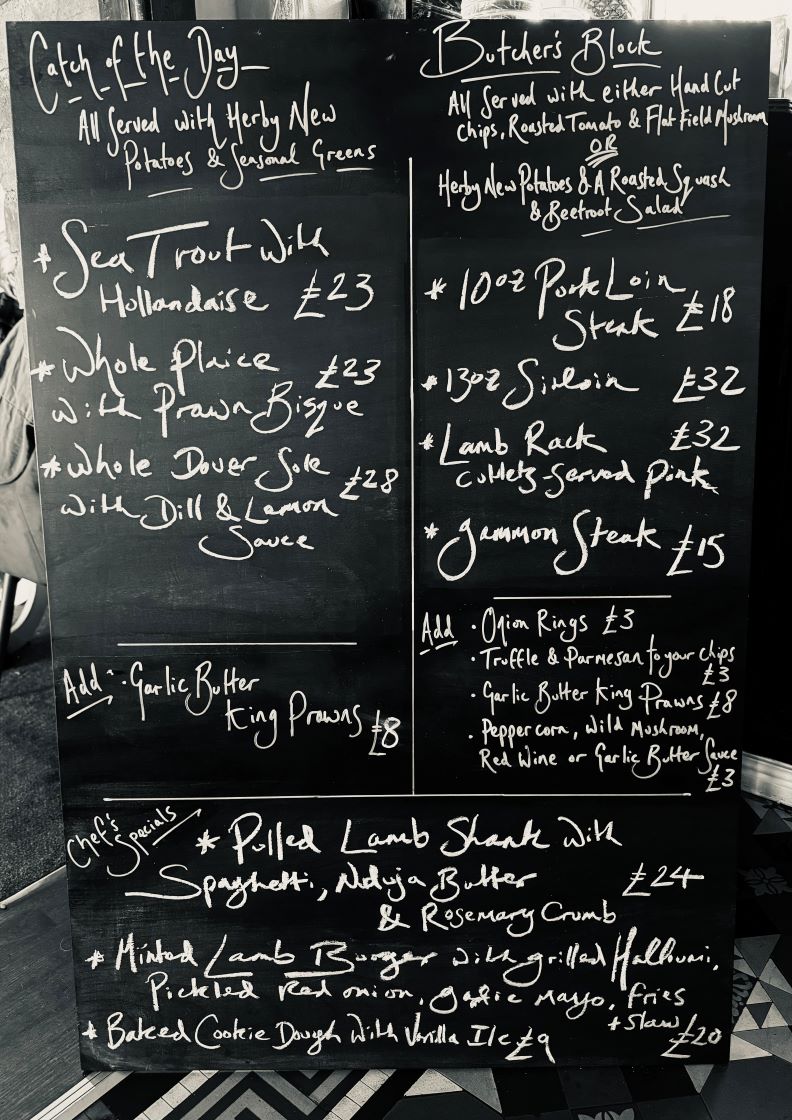 Catch of the Day
All Served with Herby New
Potatoes & Seasonal Greens
* Sea Trout with
Hollandaise £23
* Whole Plaice £23
with Prawn Bisque
* Whole Dover Sole £28
with Dill & Lemon
Sauce
Add · Garlic Butter
King Prawns £8
Butcher's Block
All Served with either Hand Cut
Chips, Roasted Tomato & Flat Field Mushroom
OR
Herby New Potatoes & A Roasted Squash
& Beetroot Salad
* 10oz Pork Loin
Steak £18
* 13oz Sirloin £32
* Lamb Rack £32
Cutlets - Served Pink
* Gammon Steak £15
Add · Onion Rings £3
· Truffle & Parmesan to your chips
£3
· Garlic Butter King Prawns £8
· Peppercorn, Wild Mushroom,
Red Wine or Garlic Butter Sauce
£3
Chef's
Specials
* Pulled Lamb Shank with
Spaghetti, Nduja Butter £24
& Rosemary Crumb
* Minted Lamb Burger with grilled Halloumi,
Pickled red onion, garlic mayo, fries
+ Slaw £20
* Baked Cookie Dough with Vanilla Ice £9